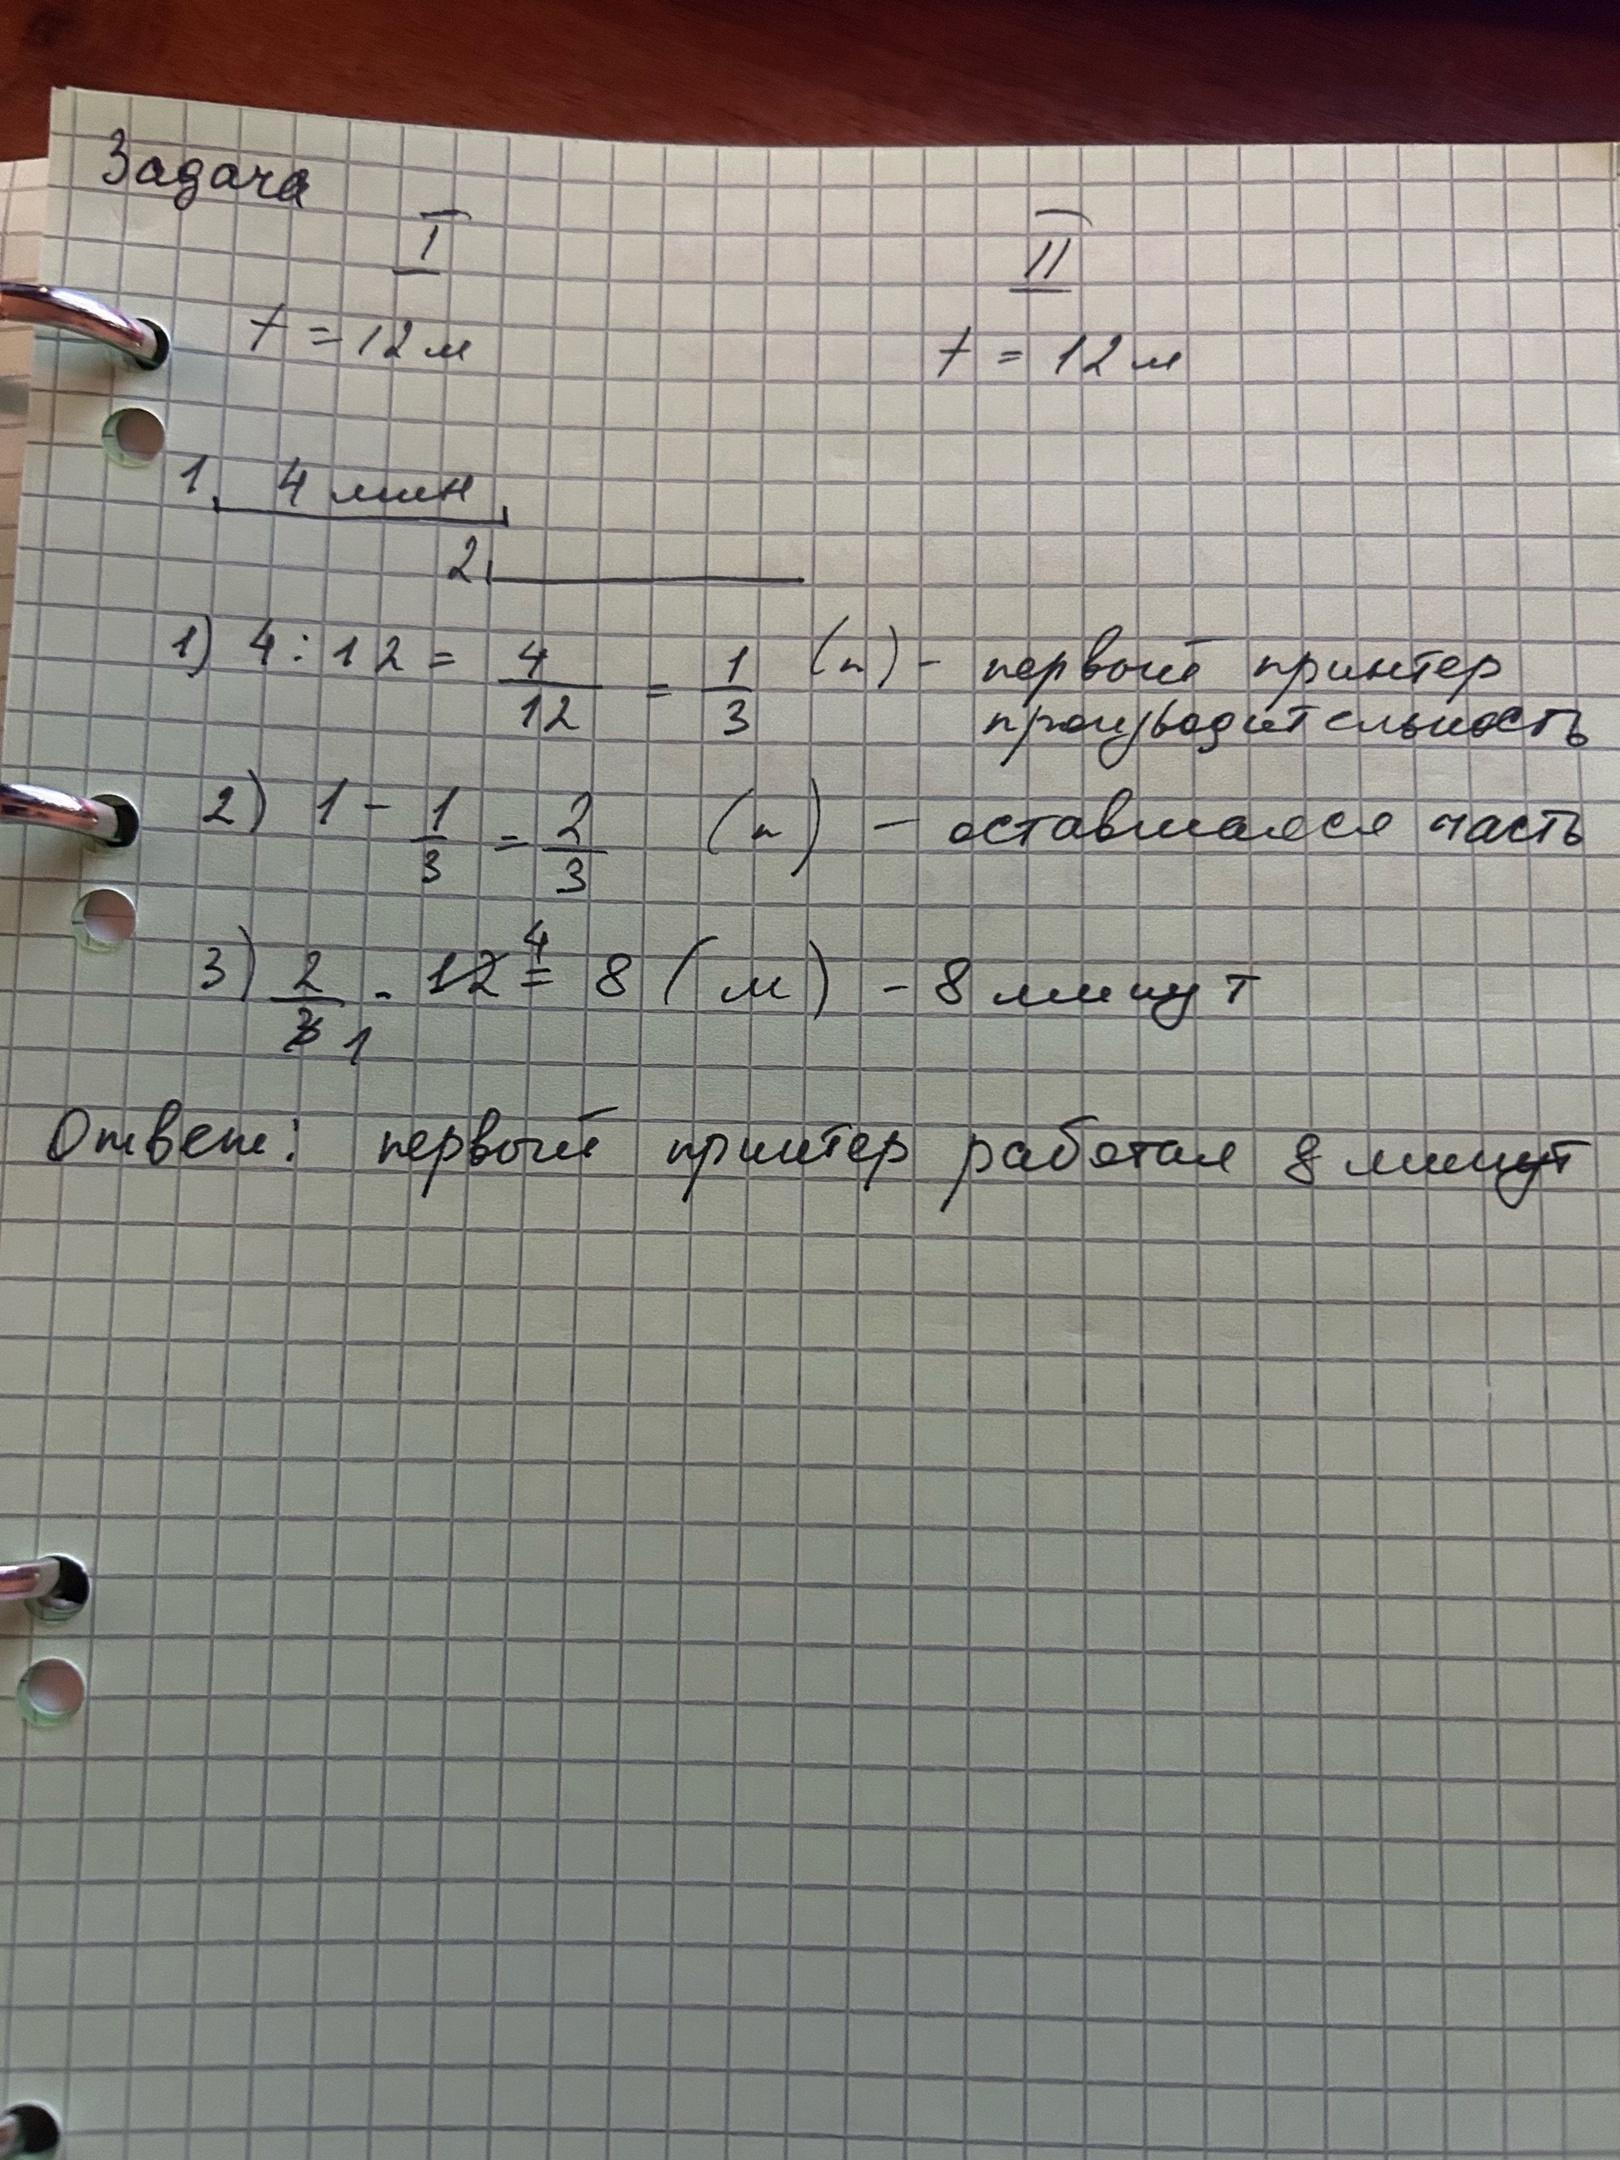 Задача
I II
t = 12 м t = 12 м
1. 4 мин
2.
1) 4 : 12 = 4/12 = 1/3 (п) - первый принтер
производительность
2) 1 - 1/3 = 2/3 (п) - оставшаяся часть
3) 2/3 1 · 12 4 = 8 (м) - 8 минут
Ответ: первый принтер работал 8 минут